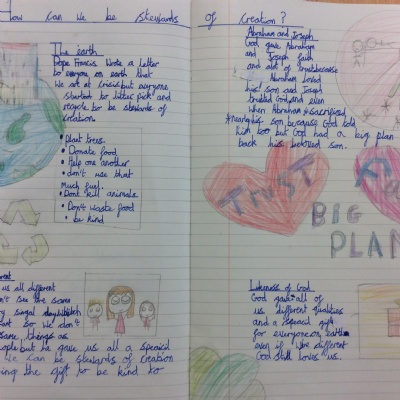 How can we be stewards of creation?
The earth
Pope Francis wrote a letter
to everyone on earth that
we are at crisis but everyone
started to litter pick and
recycle to be stewards of
creation
• Plant trees.
• Donate food
• Help one another
• don't use that
much fuel.
• Dont kill animals
• Don't waste food
• be kind
us all different
same
so we don't
same things as
people but he gave us all a speacil
we can be stewards of creation
the gift to be kind to
Abraham and Joseph
God gave Abraham
and Joseph faith
and alot of trust because
Abraham loved
his son and Joseph
trusted God and even
when Abraham sacrificed
his son because God told
him too but God had a big plan
back his beloved son.
TRUST
BIG
PLAN
Likeness of God
God gave all of
us different qualities
and a speacil gift
for everyone on earth
even if were different
God still loves us.